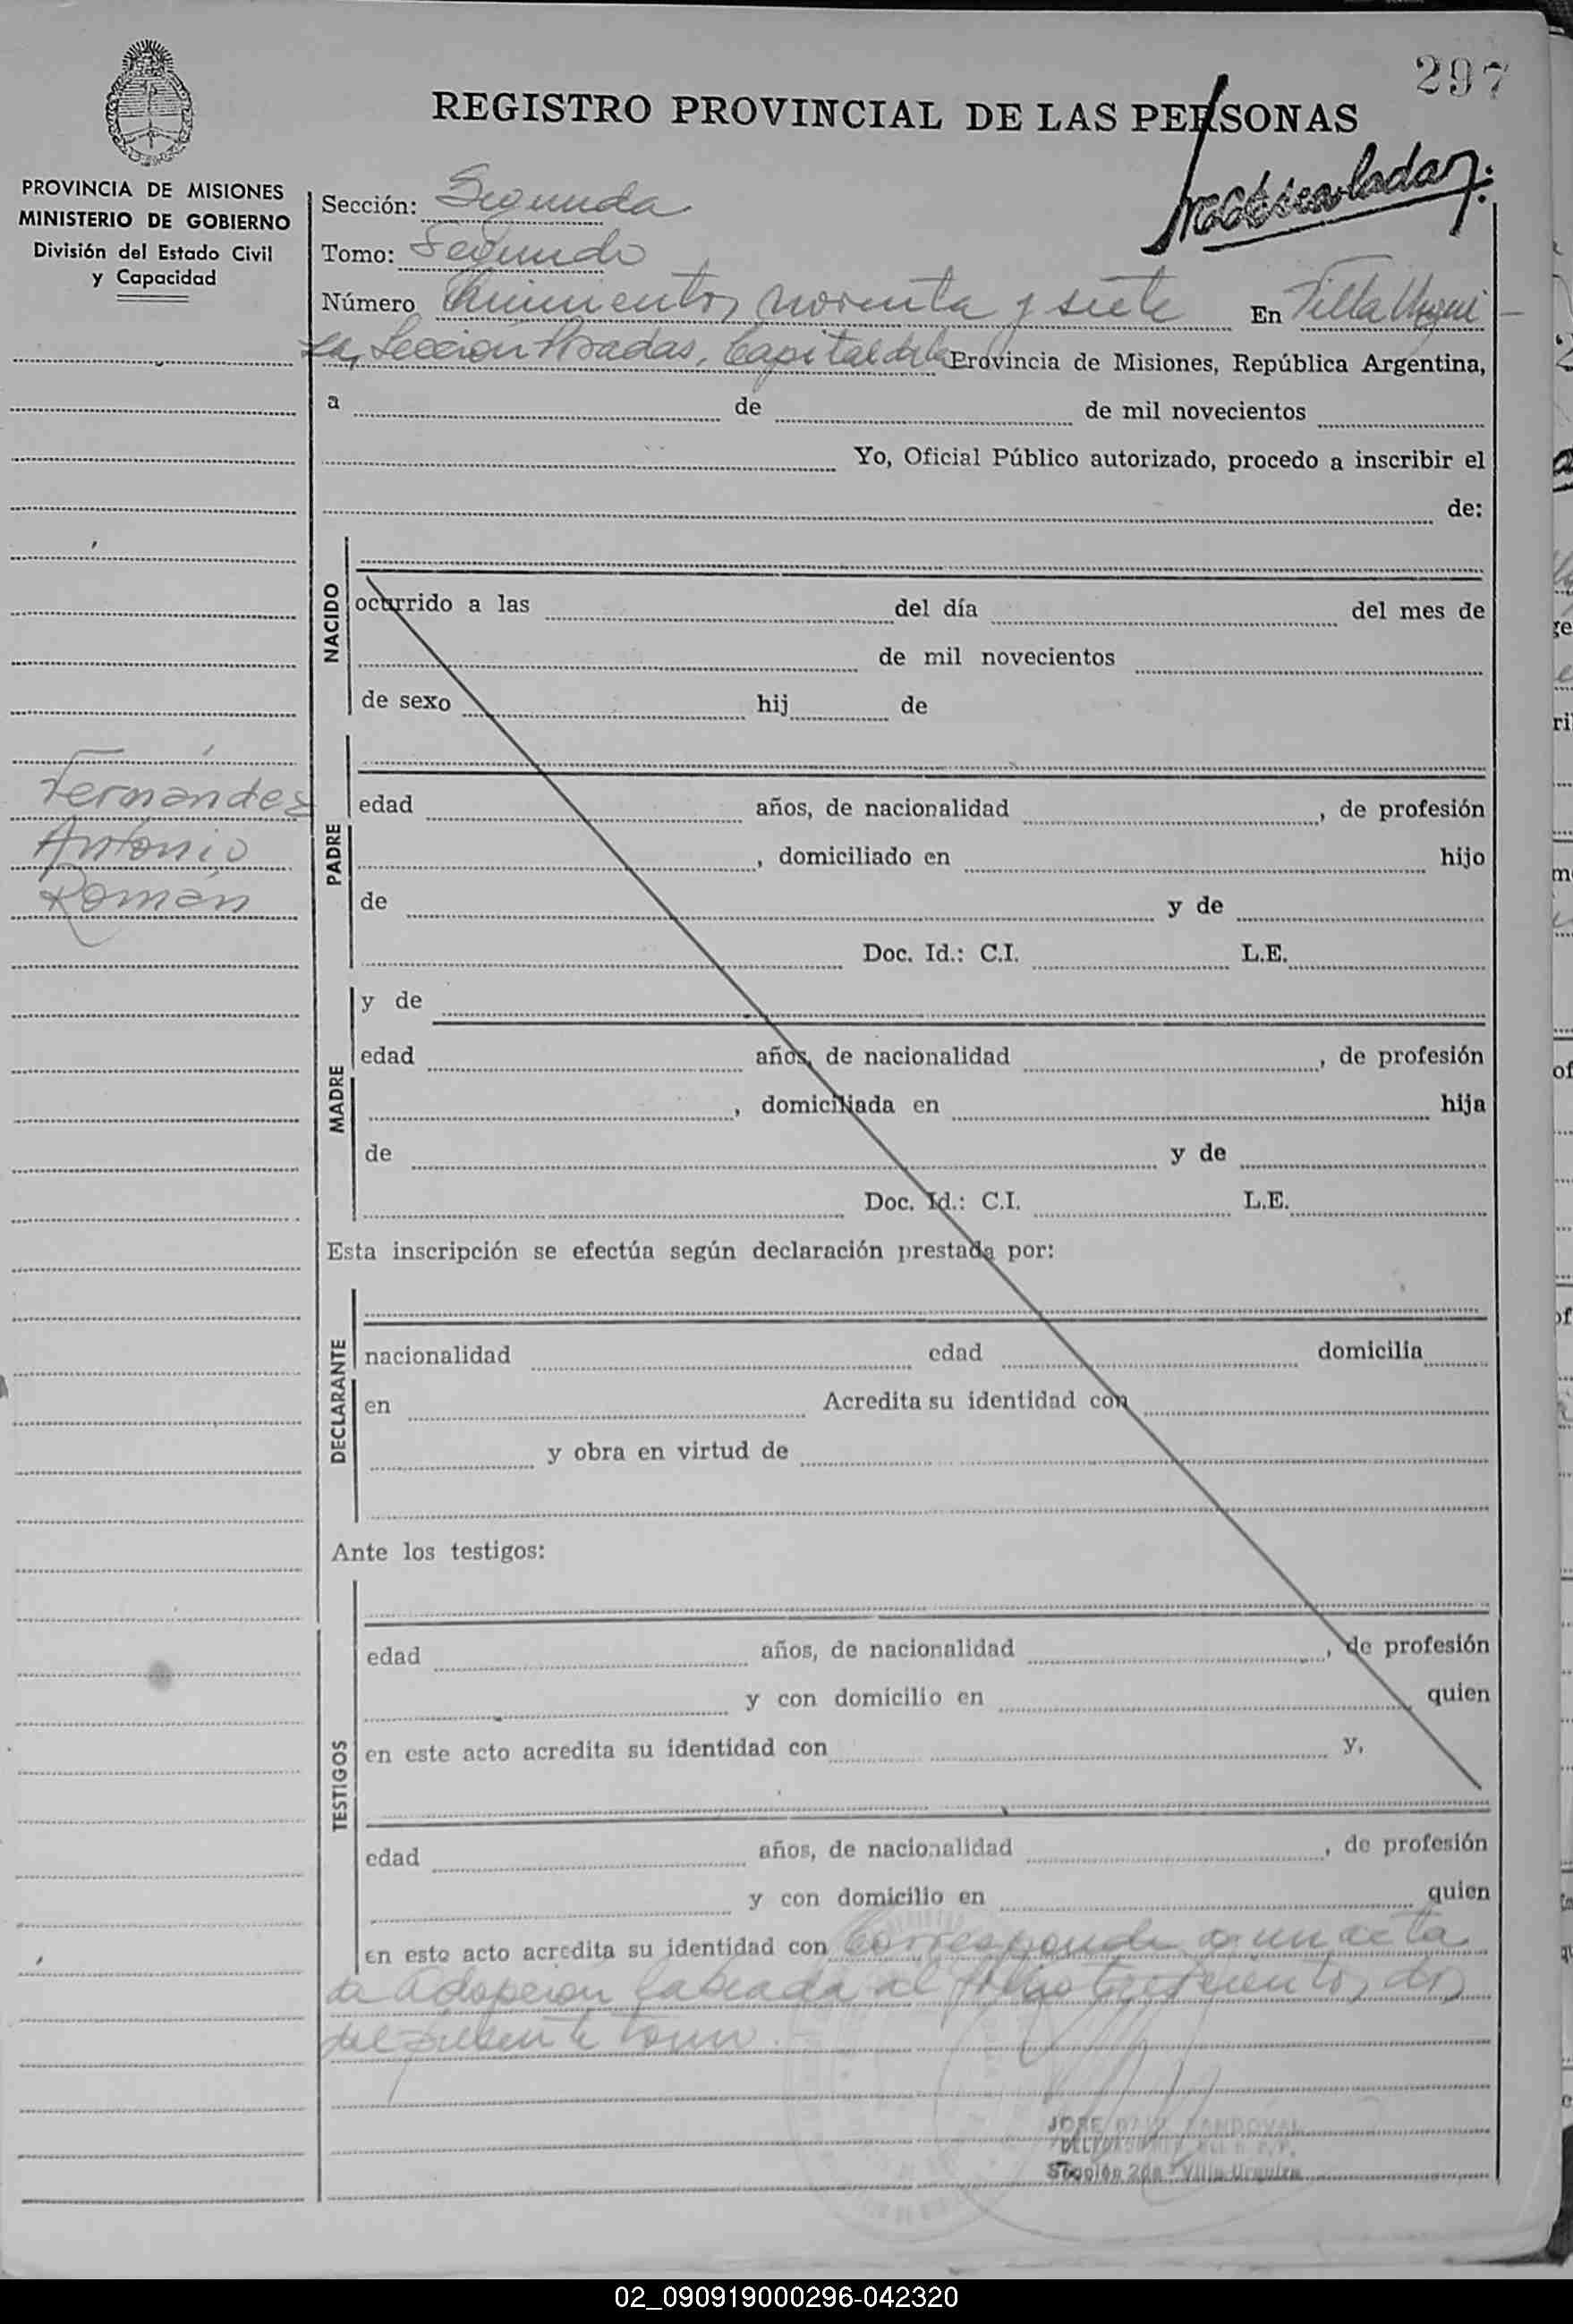 297
REGISTRO PROVINCIAL DE LAS PERSONAS
PROVINCIA DE MISIONES
MINISTERIO DE GOBIERNO
División del Estado Civil
y Capacidad
Sección: Segunda
Tomo: Segundo
Número Quinientos noventa y siete En Villa Urqui-
za, Sección Posadas, Capital de la Provincia de Misiones, República Argentina,
a de de mil novecientos
Yo, Oficial Público autorizado, procedo a inscribir el
de:
NACIDO
ocurrido a las del día del mes de
de mil novecientos
de sexo hij de
Fernández
Antonio
Román
PADRE
edad años, de nacionalidad , de profesión
, domiciliado en hijo
de y de
Doc. Id.: C.I. L.E.
MADRE
y de
edad años, de nacionalidad , de profesión
, domiciliada en hija
de y de
Doc. Id.: C.I. L.E.
Esta inscripción se efectúa según declaración prestada por:
DECLARANTE
nacionalidad edad domicilia
en Acredita su identidad con
y obra en virtud de
Ante los testigos:
TESTIGOS
edad años, de nacionalidad , de profesión
y con domicilio en quien
en este acto acredita su identidad con y,
edad años, de nacionalidad , de profesión
y con domicilio en quien
en este acto acredita su identidad con Corresponde a un acta
de Adopción labrada al folio trescientos dos
del presente tomo.
JOSE SANDOVAL
Sección 2da Villa Urquiza
02_090919000296-042320